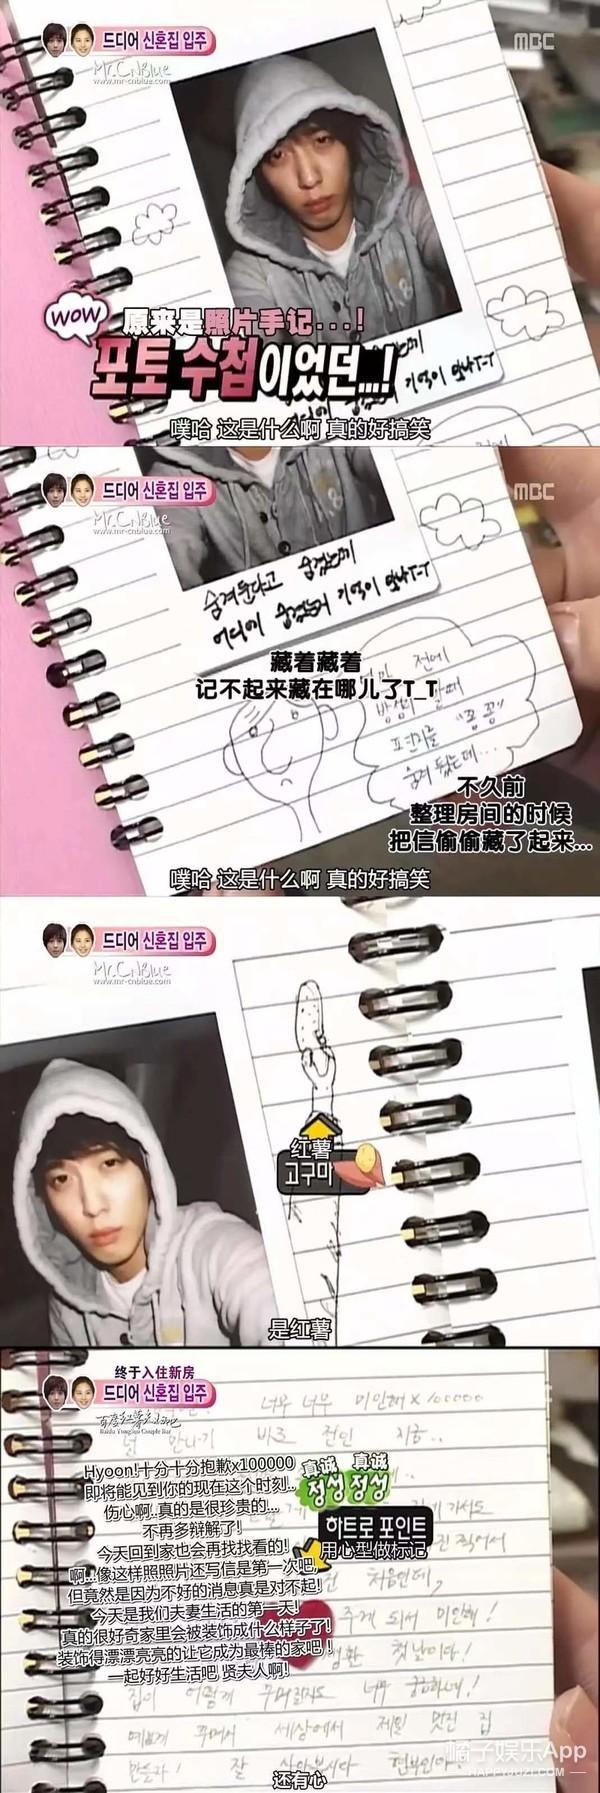 드디어 신혼집 입주
MBC
Mr.CNBlue
www.mr-cnblue.com
WOW
原来是照片手记...!
포토 수첩이었던...!
어디에 숨겼는지 기억이 안나T-T
噗哈 这是什么啊 真的好搞笑
드디어 신혼집 입주
MBC
Mr.CNBlue
www.mr-cnblue.com
숨겨둔다고 숨겼는데
어디에 숨겼는지 기억이 안나T-T
藏着藏着
记不起来藏在哪儿了T_T
전에
"꽁꽁"
숨겨 뒀는데...
不久前
整理房间的时候
把信偷偷藏了起来...
噗哈 这是什么啊 真的好搞笑
드디어 신혼집 입주
Mr.CNBlue
www.mr-cnblue.com
红薯
고구마
是红薯
终于入住新房
드디어 신혼집 입주
Baidu YongSeo Couple Bar
너무 너무 미안해 x 100000
만나기 바로 전인 지금..
Hyoon!十分十分抱歉x100000
即将能见到你的现在这个时刻..
伤心啊..真的是很珍贵的...
不再多辩解了!
今天回到家也会再找找看的!
啊..像这样照照片还写信是第一次吧
但竟然是因为不好的消息真是对不起!
今天是我们夫妻生活的第一天!
真的很好奇家里会被装饰成什么样子了!
装饰得漂漂亮亮的让它成为最棒的家吧!
一起好好生活吧 贤夫人啊!
真诚 真诚
정성 정성
하트로 포인트
用心型做标记
가서도
찍어서
처음인데,
주게 되서 미안해!
첫날이다!
집이 어떻게 꾸며질지도 너무 궁금하네!
예쁘게 꾸며서 세상에서 제일 멋진 집
만들자! 잘 살아봅시다 현부인아!
还有心
橘子娱乐App
HAPPYJUZI.COM